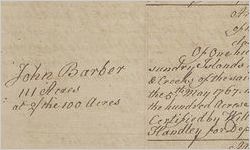 John Barber
111 Acres
at of the 100 Acres
Of One hu
sundry Islands
& Creeks of the sa
the 5th May 1767.
the hundred Acres
Certified by Will
Handley for Dep